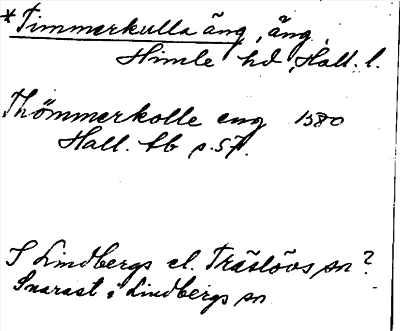 *Timmerkulla äng, äng,
Himle hd, Hall. l.
Thömmerkolle eng 1580
Hall. tb s. 57.
I Lindbergs el. Träslövs sn?
Snarast i Lindbergs sn